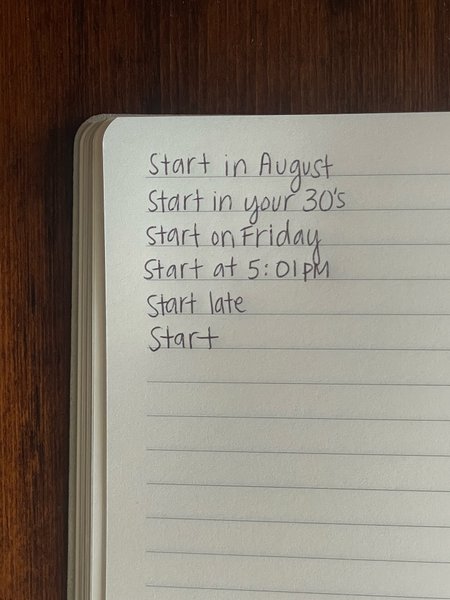 Start in August
Start in your 30's
Start on Friday
Start at 5:01PM
Start late
Start